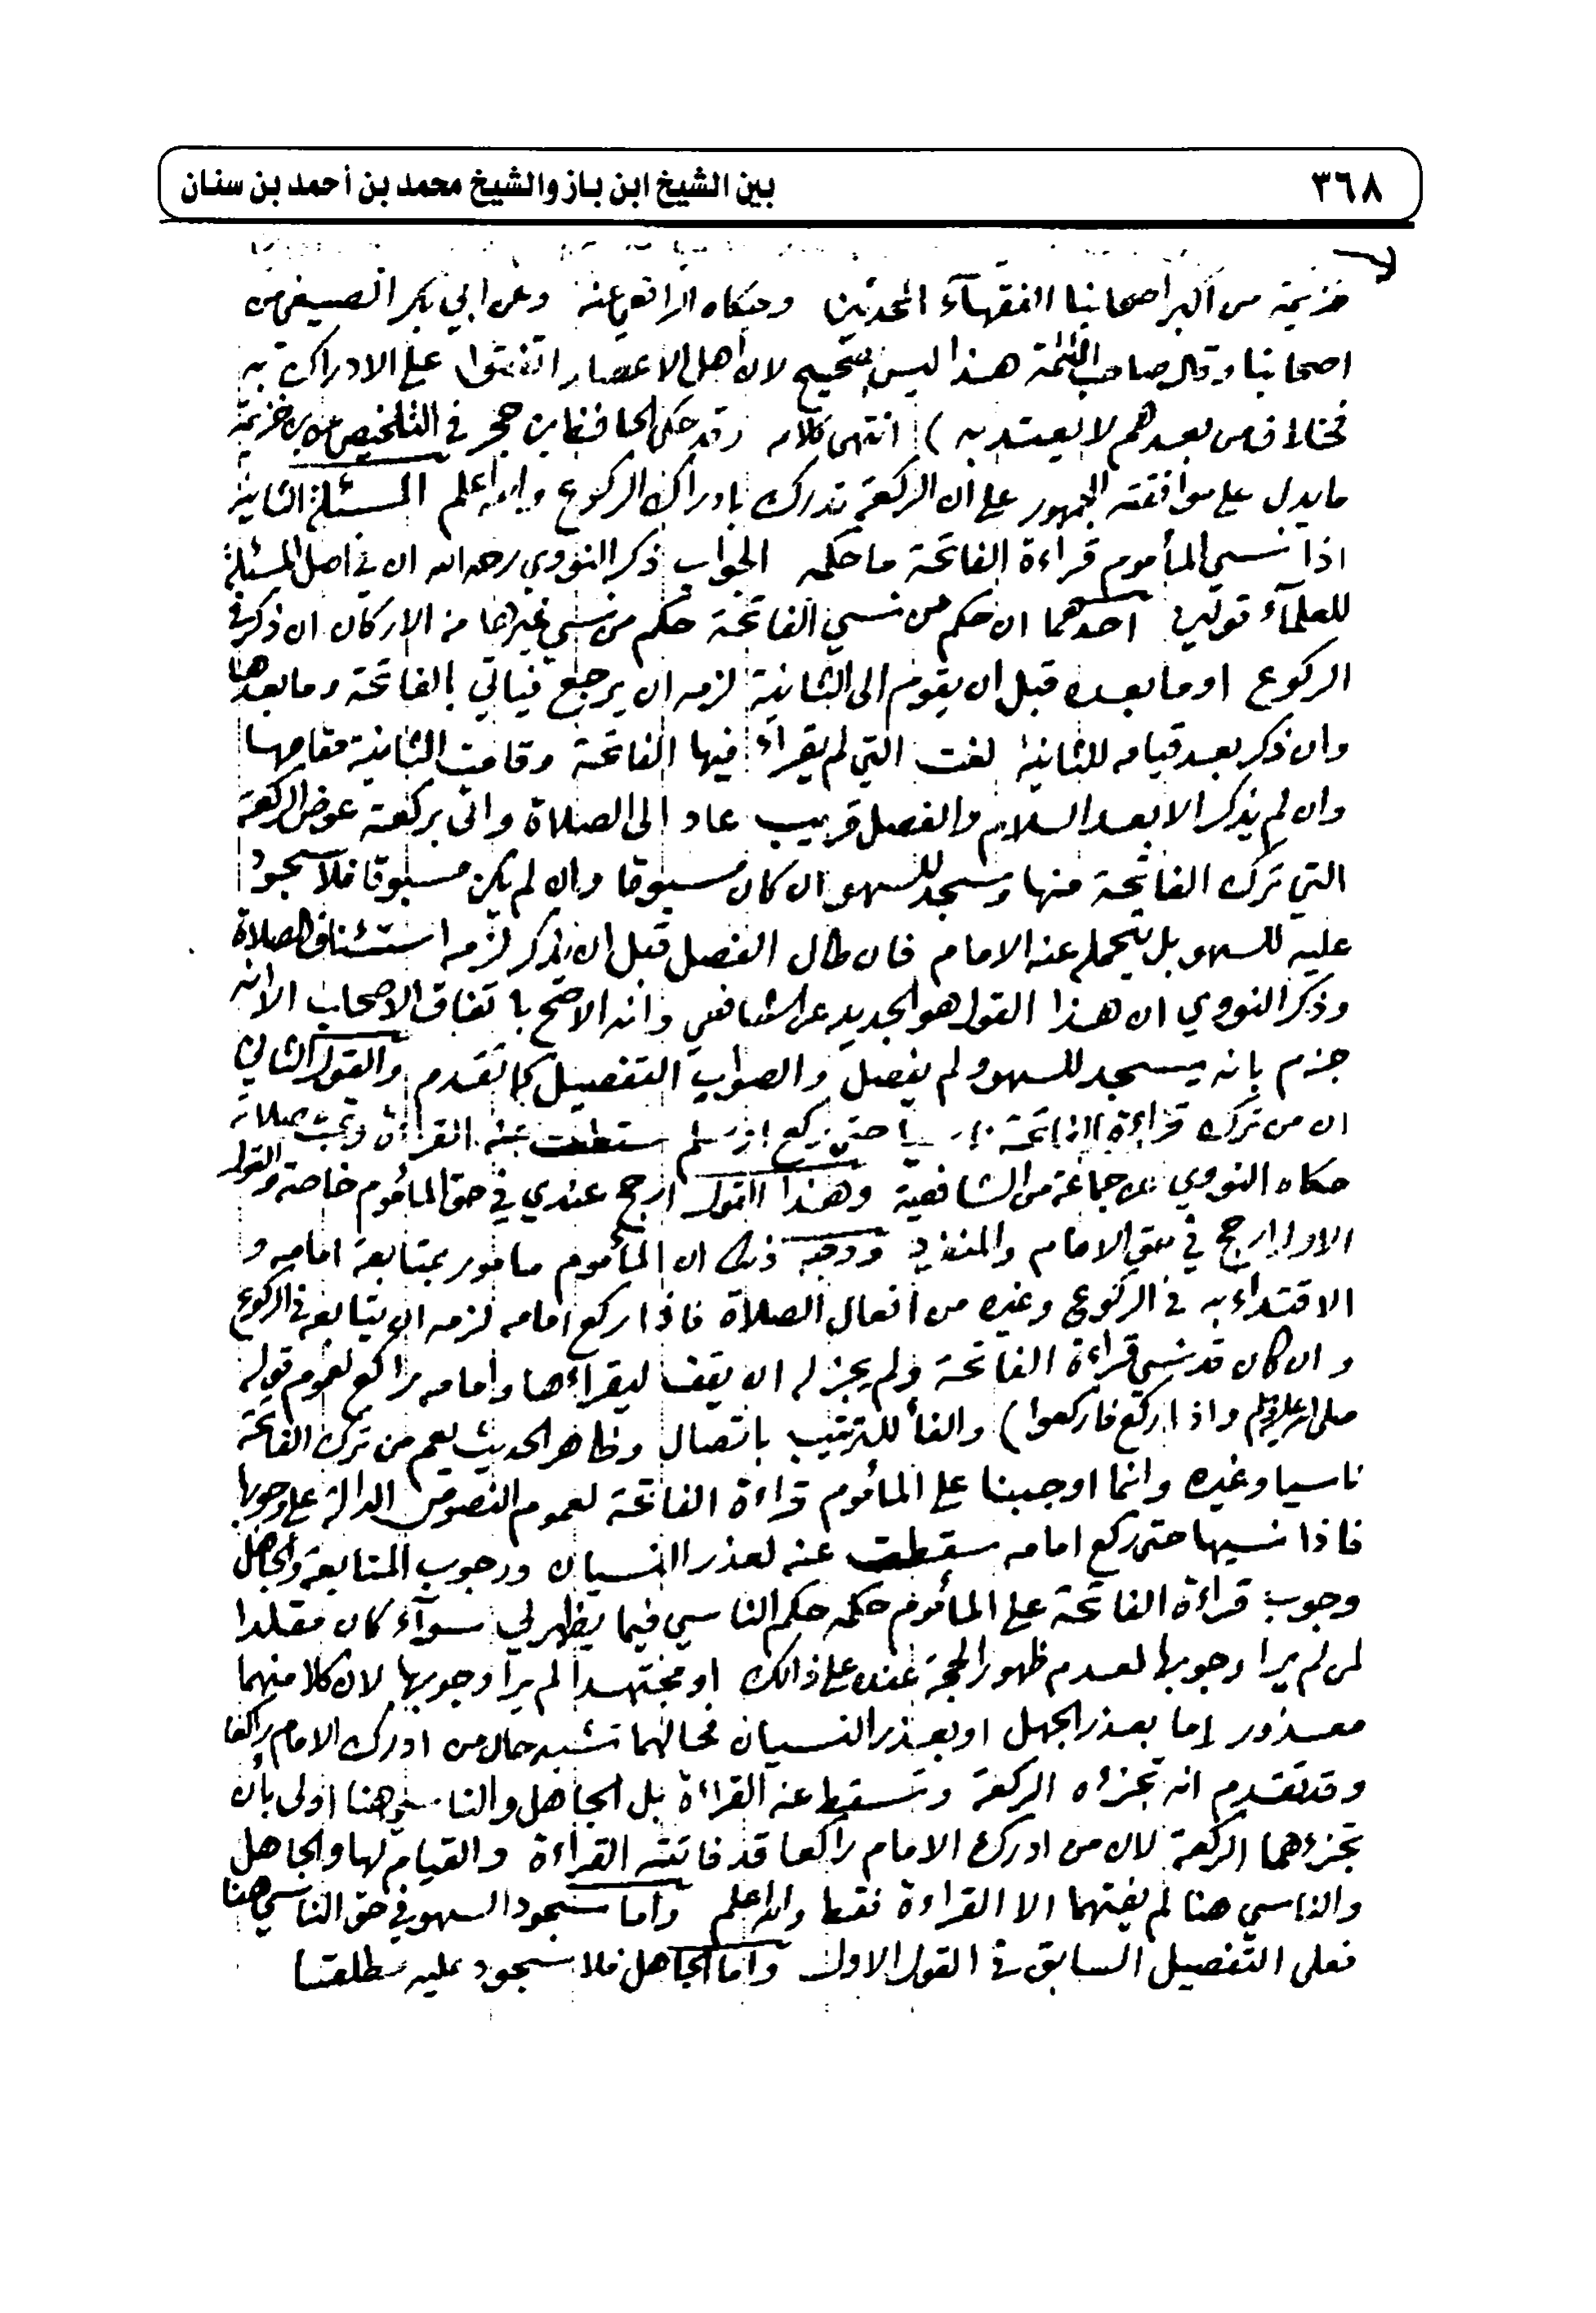 ٣٦٨
بين الشيخ ابن باز والشيخ محمد بن أحمد بن سنان
خزيمة من اكبر اصحابنا الفقهآء المحدثين وحكاه الرافعي عنه وعن ابي بكر الصبغي من
اصحابنا وقال صاحب التتمة هذا ليس بصحيح لان اهل الاعصار اتفقوا على الادراك به
فخلاف من بعدهم لا يعتد به ) انتهى كلامه وقد حكى الحافظ ابن حجر في التلخيص عن ابن خزيمة
ما يدل على موافقته الجمهور على ان الركعة تدرك بادراك الركوع والله اعلم المسئلة الثانية
اذا نسي المأموم قراءة الفاتحة ما حكمه الجواب ذكر النووي رحمه الله ان في اصل المسئلة
للعلمآء قولين احدهما ان حكم من نسي الفاتحة حكم من نسي غيرها من الاركان ان ذكر في
الركوع او ما بعده قبل ان يقوم الى الثانية لزمه ان يرجع فيأتي بالفاتحة وما بعدها
وان ذكر بعد قيامه للثانية لغت التي لم يقراء فيها الفاتحة وقامت الثانية مقامها
وان لم يذكر الا بعد السلام والفصل قريب عاد الى الصلاة واتى بركعة عوض الركعة
التي ترك الفاتحة منها وسجد للسهو ان كان مسبوقا وان لم يكن مسبوقا فلا سجود
عليه للسهو بل يتحمله عنه الامام فان طال الفصل قبل ان يذكر لزمه استئناف الصلاة
وذكر النووي ان هذا القول هو الجديد عن الشافعي وانه الاصح باتفاق الاصحاب الا انه
جزم بانه يسجد للسهو ولم يفصل والصواب التفصيل كما تقدم والقول الثاني
ان من ترك قراءة الفاتحة ناسيا حتى ركع او سلم سقطت عنه القراءة وتمت صلاته
حكاه النووي عن جماعة من الشافعية وهذا القول ارجح عندي في حق المأموم خاصة والقول
الاول ارجح في حق الامام والمنفرد ووجه ذلك ان المأموم مامور بمتابعة امامه و
الاقتداء به في الركوع وغيره من افعال الصلاة فاذا ركع امامه لزمه ان يتابعه في الركوع
وان كان قد نسي قراءة الفاتحة ولم يجز له ان يقف ليقراءها وامامه راكع لعموم قوله
صلى الله عليه وسلم واذا ركع فاركعوا ) والفأ للترتيب باتصال وظاهر الحديث يعم من ترك الفاتحة
ناسيا وغيره وانما اوجبنا على المأموم قراءة الفاتحة لعموم النصوص الدالة على وجوبها
فاذا نسيها حتى ركع امامه سقطت عنه لعذر النسيان ووجوب المتابعة والجاهل
وجوب قراءة الفاتحة على المأموم حكمه حكم الناسي فيما يظهر لي سوآء كان مقلدا
لمن لم يرا وجوبها لعدم ظهور الحجة عنده على ذالك او مجتهدا لم يرا وجوبها لان كلا منهما
معذور إما بعذر الجهل او بعذر النسيان فحالهما تشبه حال من ادرك الامام راكعا
وقد تقدم انه تجزئه الركعة وتسقط عنه القراءة بل الجاهل والناسي هنا اولى بأن
تجزءهما الركعة لان من ادرك الامام راكعا قد فاتته القراءة والقيام لها والجاهل
والناسي هنا لم يفتهما الا القراءة فقط والله اعلم واما سجود السهو في حق الناسي هنا
فعلى التفصيل السابق في القول الاول واما الجاهل فلا سجود عليه مطلقا